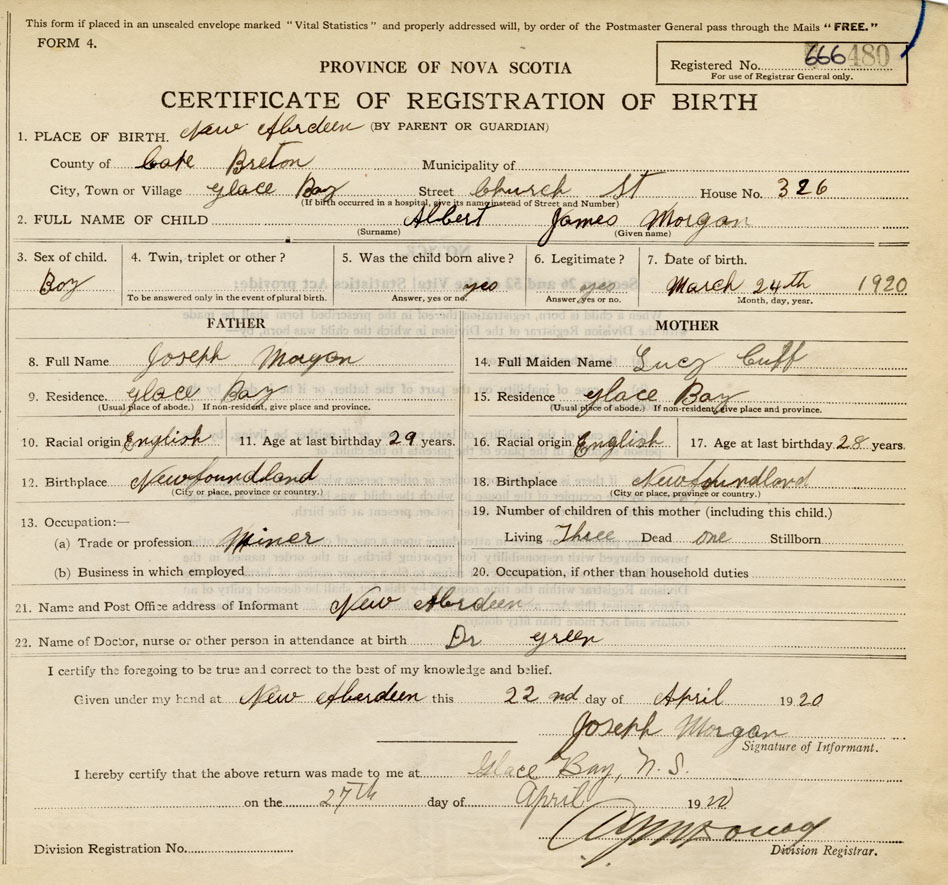 This form if placed in an unsealed envelope marked "Vital Statistics" and properly addressed will, by order of the Postmaster General pass through the Mails "FREE."
FORM 4.
Registered No. 666480
For use of Registrar General only.
PROVINCE OF NOVA SCOTIA
CERTIFICATE OF REGISTRATION OF BIRTH
1. PLACE OF BIRTH. New Aberdeen (BY PARENT OR GUARDIAN)
County of Cape Breton Municipality of
City, Town or Village Glace Bay Street Church St House No. 326
(If birth occurred in a hospital, give its name instead of Street and Number)
2. FULL NAME OF CHILD Albert James Morgan
(Surname) (Given name)
3. Sex of child. 4. Twin, triplet or other? 5. Was the child born alive? 6. Legitimate? 7. Date of birth.
Boy yes yes March 24th 1920
To be answered only in the event of plural birth. Answer, yes or no. Answer, yes or no. Month, day, year.
FATHER MOTHER
8. Full Name Joseph Morgan 14. Full Maiden Name Lucy Cuff
9. Residence. Glace Bay 15. Residence Glace Bay
(Usual place of abode.) If non-resident, give place and province. (Usual place of abode.) If non-resident, give place and province.
10. Racial origin English 11. Age at last birthday 29 years. 16. Racial origin English 17. Age at last birthday 28 years.
12. Birthplace Newfoundland 18. Birthplace Newfoundland
(City or place, province or country.) (City or place, province or country.)
13. Occupation:— 19. Number of children of this mother (including this child.)
(a) Trade or profession Miner Living Three Dead one Stillborn
(b) Business in which employed 20. Occupation, if other than household duties
21. Name and Post Office address of Informant New Aberdeen
22. Name of Doctor, nurse or other person in attendance at birth Dr Green
I certify the foregoing to be true and correct to the best of my knowledge and belief.
Given under my hand at New Aberdeen this 22nd day of April 1920
Joseph Morgan
Signature of Informant.
I hereby certify that the above return was made to me at Glace Bay, N.S.
on the 27th day of April 1920
Division Registration No. Division Registrar.